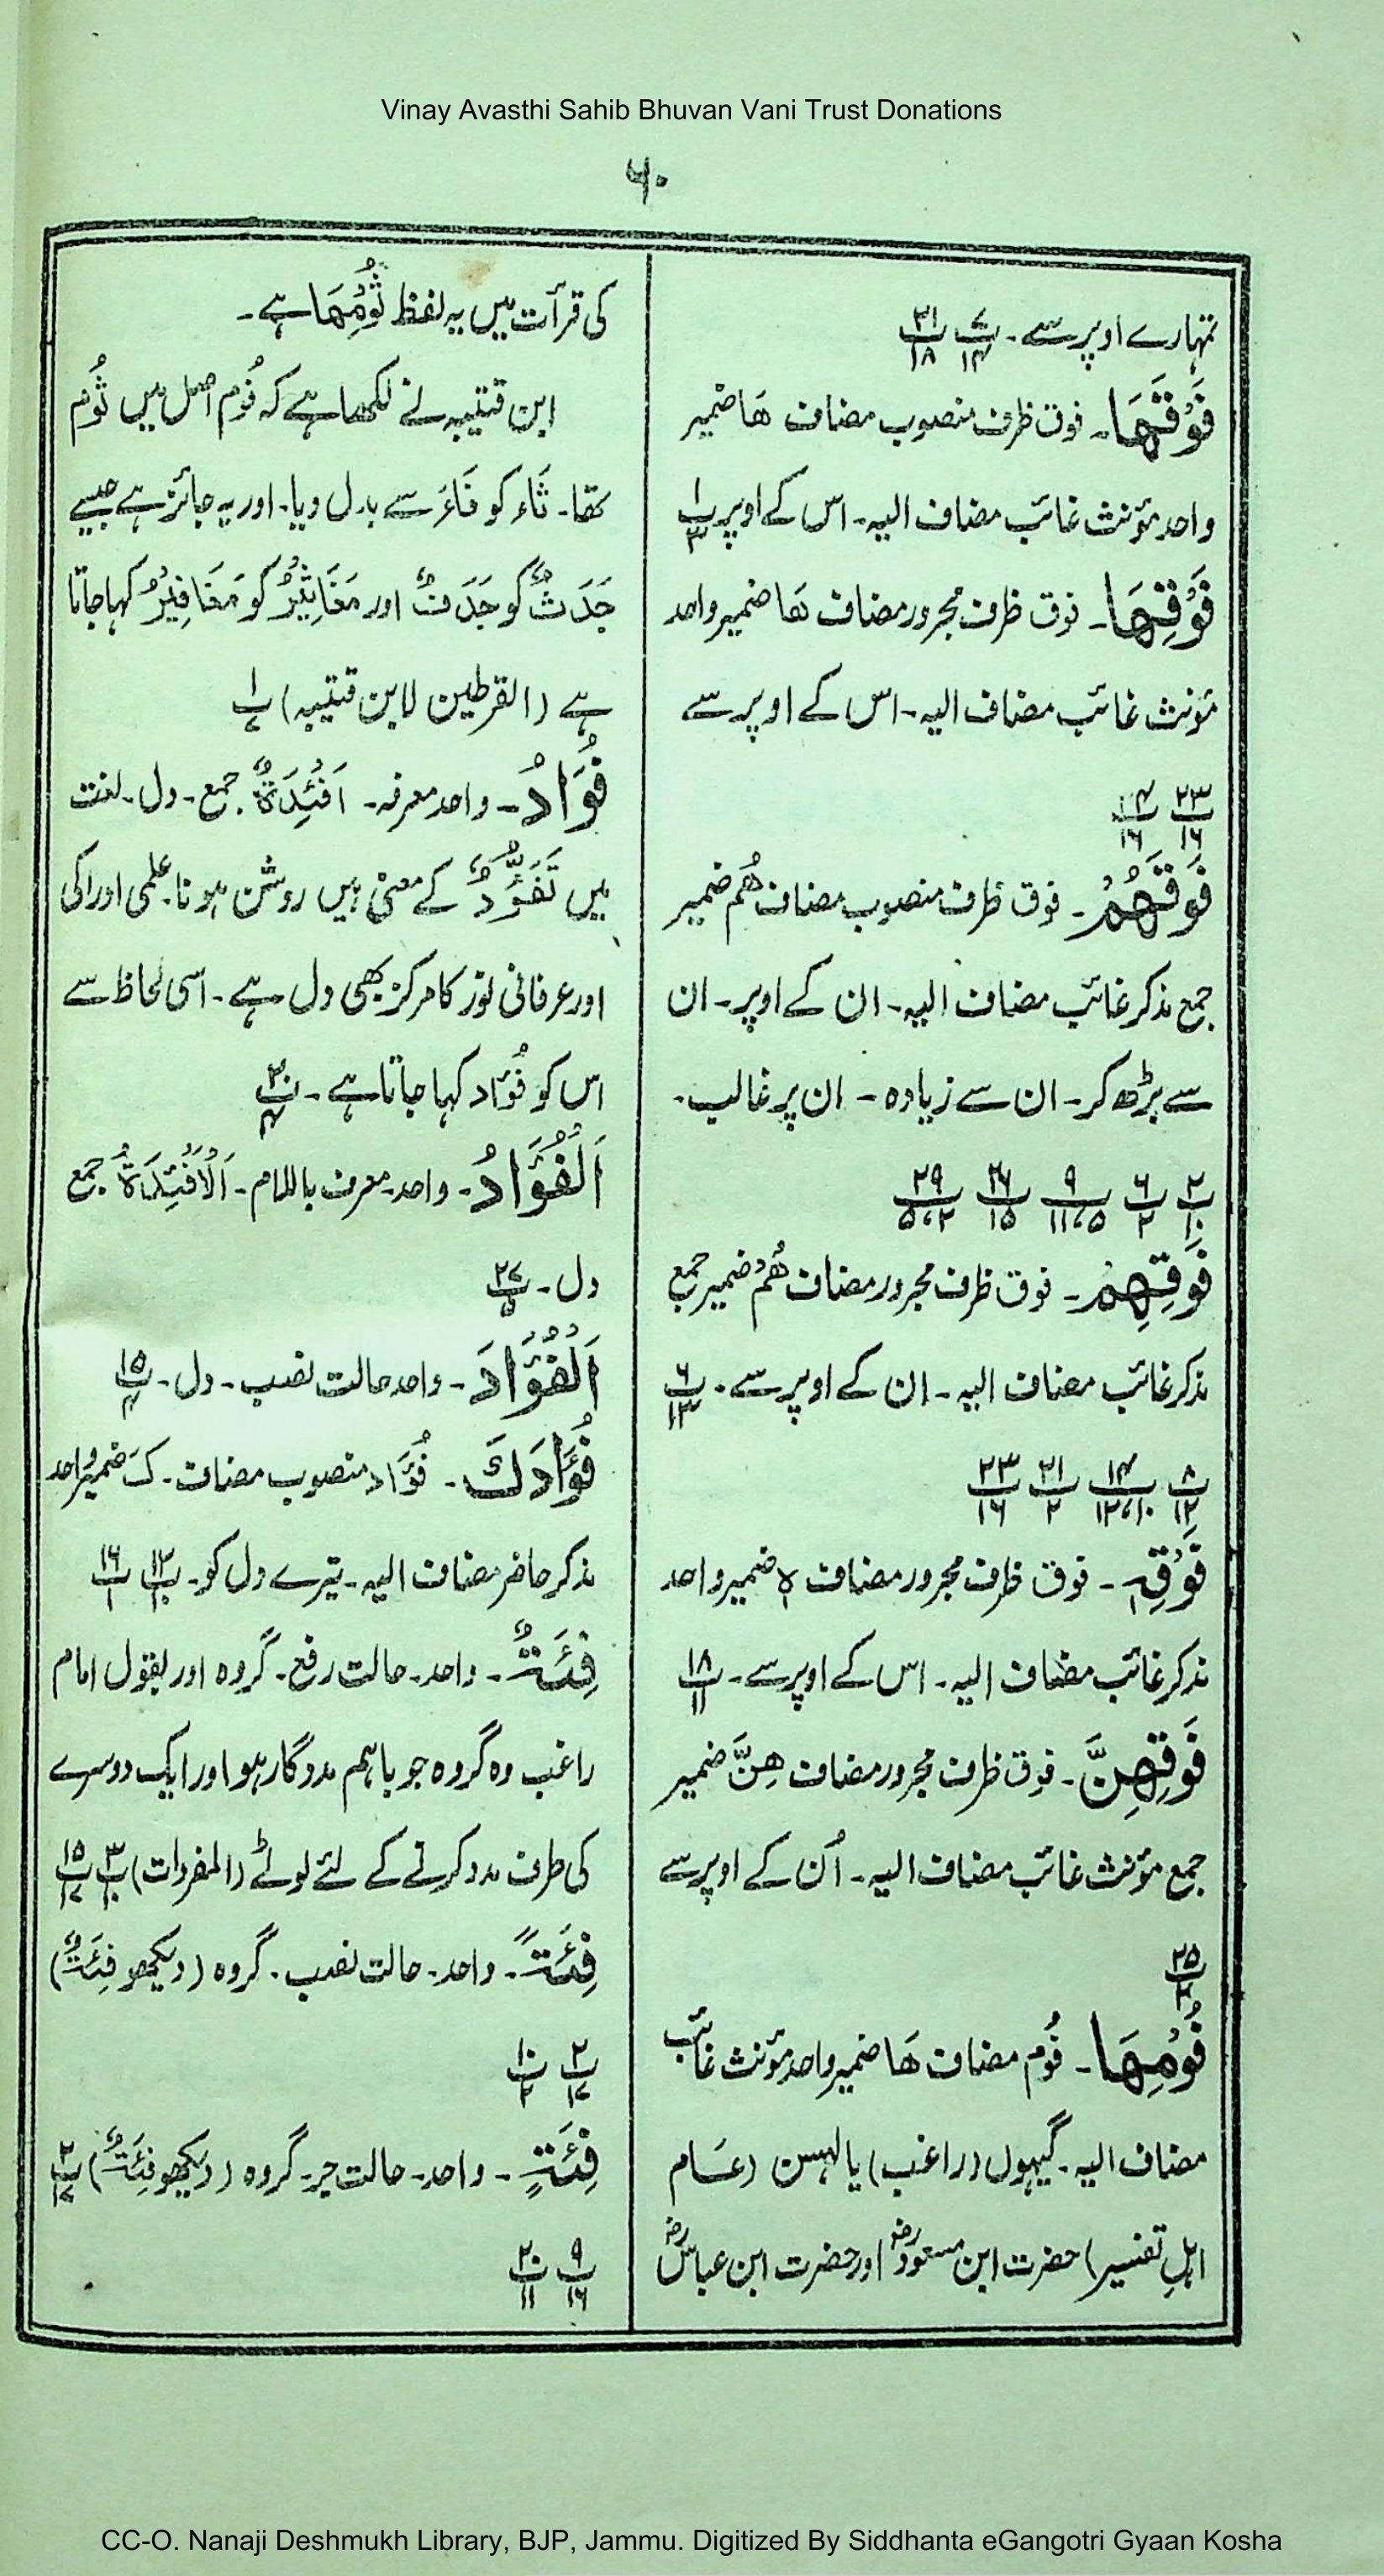 Vinay Avasthi Sahib Bhuvan Vani Trust Donations
۶۰
تمہارے اوپر سے۔ پ۷/۱۴ پ۲۱/۱۸
فَوْقَهَا۔ فوق ظرف منصوب مضاف ھَا ضمیر
واحد مؤنث غائب مضاف الیہ۔ اس کے اوپر پ۱/۳
فَوْقِهَا۔ فوق ظرف مجرور مضاف ھَا ضمیر واحد
مؤنث غائب مضاف الیہ۔ اس کے اوپر سے
پ۲۳/۱۶ پ۱۳/۱۶
فَوْقَهُمْ۔ فوق ظرف منصوب مضاف ھُم ضمیر
جمع مذکر غائب مضاف الیہ۔ ان کے اوپر۔ ان
سے بڑھ کر۔ ان سے زیادہ۔ ان پر غالب۔
پ۲/۱۰ پ۶/۲ پ۹/۱۱،۵ پ۲۶/۱۵ پ۲۹/۵،۲
فَوْقِهِمْ۔ فوق ظرف مجرور مضاف ھُمْ ضمیر جمع
مذکر غائب مضاف الیہ۔ ان کے اوپر سے۔ پ۶/۱۳
پ۸/۱۲ پ۱۴/۱۲،۱۰ پ۲۱/۲ پ۲۳/۱۶
فَوْقِهٖ۔ فوق ظرف مجرور مضاف ہٖ ضمیر واحد
مذکر غائب مضاف الیہ۔ اس کے اوپر سے۔ پ۱۸/۱۱
فَوْقِهِنَّ۔ فوق ظرف مجرور مضاف ھِنَّ ضمیر
جمع مؤنث غائب مضاف الیہ۔ اُن کے اوپر سے
پ۲۵/۲
فُوْمِهَا۔ فُوم مضاف ھَا ضمیر واحد مؤنث غائب
مضاف الیہ۔ گیہوں (راغب) یا لہسن (عام
اہلِ تفسیر) حضرت ابن مسعودؓ اور حضرت ابن عباسؓ
کی قرآت میں یہ لفظ ثُوْمِهَا ہے۔
ابن قتیبہ نے لکھا ہے کہ فُوم اصل میں ثُوم
تھا۔ ثَاء کو فَاءَ سے بدل دیا۔ اور یہ جائز ہے جیسے
جَدَثٌ کو جَدَفٌ اور مَغَاثِیْرُ کو مَغَافِیْرُ کہا جاتا
ہے (القرطین لابن قتیبہ) پ۱/۷
فُؤَادُ۔ واحد معرفہ۔ اَفْئِدَةٌ جمع۔ دل۔ لغت
میں تَفَؤُّدٌ کے معنی ہیں روشن ہونا۔ علمی ادراکی
اور عرفانی نور کا مرکز بھی دل ہے۔ اسی لحاظ سے
اس کو فُؤاد کہا جاتا ہے۔ پ۲۰/۴
اَلْفُؤَادُ۔ واحد۔ معرف باللام۔ اَلْاَفْئِدَةُ جمع
دل۔ پ۲۷/۵
اَلْفُؤَادَ۔ واحد حالت نصب۔ دل۔ پ۱۵/۴
فُؤَادَكَ۔ فُؤَاد منصوب مضاف۔ کَ ضمیر واحد
مذکر حاضر مضاف الیہ۔ تیرے دل کو۔ پ۱۲/۱۰ پ۱۶/۱
فِئَةٌ۔ واحد۔ حالت رفع۔ گروہ اور بقول امام
راغب وہ گروہ جو باہم مددگار ہو اور ایک دوسرے
کی طرف مدد کرنے کے لئے لوٹے (المفردات) پ۳/۱۰ پ۱۵/۱۷
فِئَةً۔ واحد۔ حالت نصب۔ گروہ (دیکھو فِئَةٌ)
پ۲/۱۷ پ۱۰/۲
فِئَةٍ۔ واحد۔ حالت جر۔ گروہ (دیکھو فِئَةٌ) پ۲/۱۷
پ۹/۱۶ پ۲۰/۱۱
CC-O. Nanaji Deshmukh Library, BJP, Jammu. Digitized By Siddhanta eGangotri Gyaan Kosha